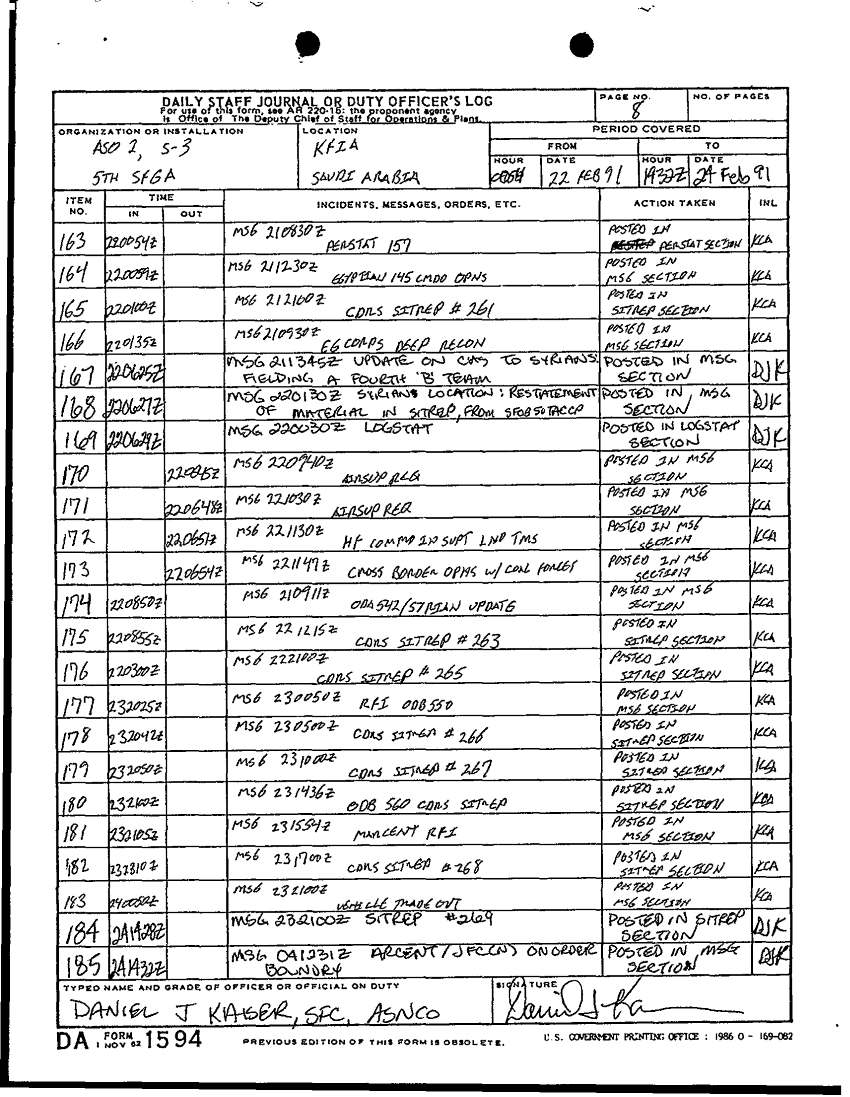 DAILY STAFF JOURNAL OR DUTY OFFICER'S LOG
For use of this form, see AR 220-15: the proponent agency
is Office of The Deputy Chief of Staff for Operations & Plans.
PAGE NO.
8
NO. OF PAGES
ORGANIZATION OR INSTALLATION
ASO 2, S-3
5TH SFGA
LOCATION
KFIA
SAUDI ARABIA
PERIOD COVERED
FROM
TO
HOUR
DATE
22 FEB 91
HOUR
1432Z
DATE
24 Feb 91
ITEM NO.
TIME
IN
OUT
INCIDENTS, MESSAGES, ORDERS, ETC.
ACTION TAKEN
INL
163 220054Z MSG 210830Z POSTED IN
PERSTAT 157 PERSTAT SECTION KCA
164 220059Z MSG 211230Z POSTED IN
EGYPTIAN 145 CMDO OPNS MSG SECTION KCA
165 220100Z MSG 212100Z POSTED IN
CDRS SITREP # 261 SITREP SECTION KCA
166 220135Z MSG 210930Z POSTED IN
EG CORPS DEEP RECON MSG SECTION KCA
167 220625Z MSG 211345Z UPDATE ON CAS TO SYRIANS POSTED IN MSG
FIELDING A FOURTH 'B' TEAM SECTION DJK
168 220627Z MSG 220130Z SYRIANS LOCATION: RESTATEMENT POSTED IN MSG
OF MATERIAL IN SITREP, FROM SFOB SOTACCP SECTION DJK
169 220629Z MSG 220030Z LOGSTAT POSTED IN LOGSTAT
SECTION DJK
170 220645Z MSG 220940Z POSTED IN MSG
AIRSUP REQ SECTION KCA
171 220648Z MSG 221030Z POSTED IN MSG
AIRSUP REQ SECTION KCA
172 220651Z MSG 221130Z POSTED IN MSG
HF COMMO IN SUPT LNO TMS SECTION KCA
173 220654Z MSG 221147Z POSTED IN MSG
CROSS BORDER OPNS W/ COAL FORCES SECTION KCA
174 220850Z MSG 210911Z POSTED IN MSG
ODA 542/SYRIAN UPDATE SECTION KCA
175 220855Z MSG 221215Z POSTED IN
CDRS SITREP # 263 SITREP SECTION KCA
176 220300Z MSG 222100Z POSTED IN
CDRS SITREP # 265 SITREP SECTION KCA
177 232025Z MSG 230050Z RFI ODB 550 POSTED IN
MSG SECTION KCA
178 232042Z MSG 230500Z POSTED IN
CDRS SITREP # 266 SITREP SECTION KCA
179 232050Z MSG 231000Z POSTED IN
CDRS SITREP # 267 SITREP SECTION KCA
180 232100Z MSG 231436Z POSTED IN
ODB 560 CDRS SITREP SITREP SECTION KCA
181 232105Z MSG 231554Z POSTED IN
MARCENT RFI MSG SECTION KCA
182 232310Z MSG 231700Z POSTED IN
CDRS SITREP # 268 SITREP SECTION KCA
183 240050Z MSG 232100Z POSTED IN
VEHICLE TRADE OUT MSG SECTION KCA
184 241428Z MSG 232100Z SITREP #269 POSTED IN SITREP
SECTION DJK
185 241432Z MSG 041231Z ARCENT/JFC(N) ON ORDER POSTED IN MSG
BOUNDRY SECTION DJK
TYPED NAME AND GRADE OF OFFICER OR OFFICIAL ON DUTY
DANIEL J KAISER, SFC, ASNCO
SIGNATURE
DA FORM 1 NOV 62 1594
PREVIOUS EDITION OF THIS FORM IS OBSOLETE.
U.S. GOVERNMENT PRINTING OFFICE : 1986 O - 169-082